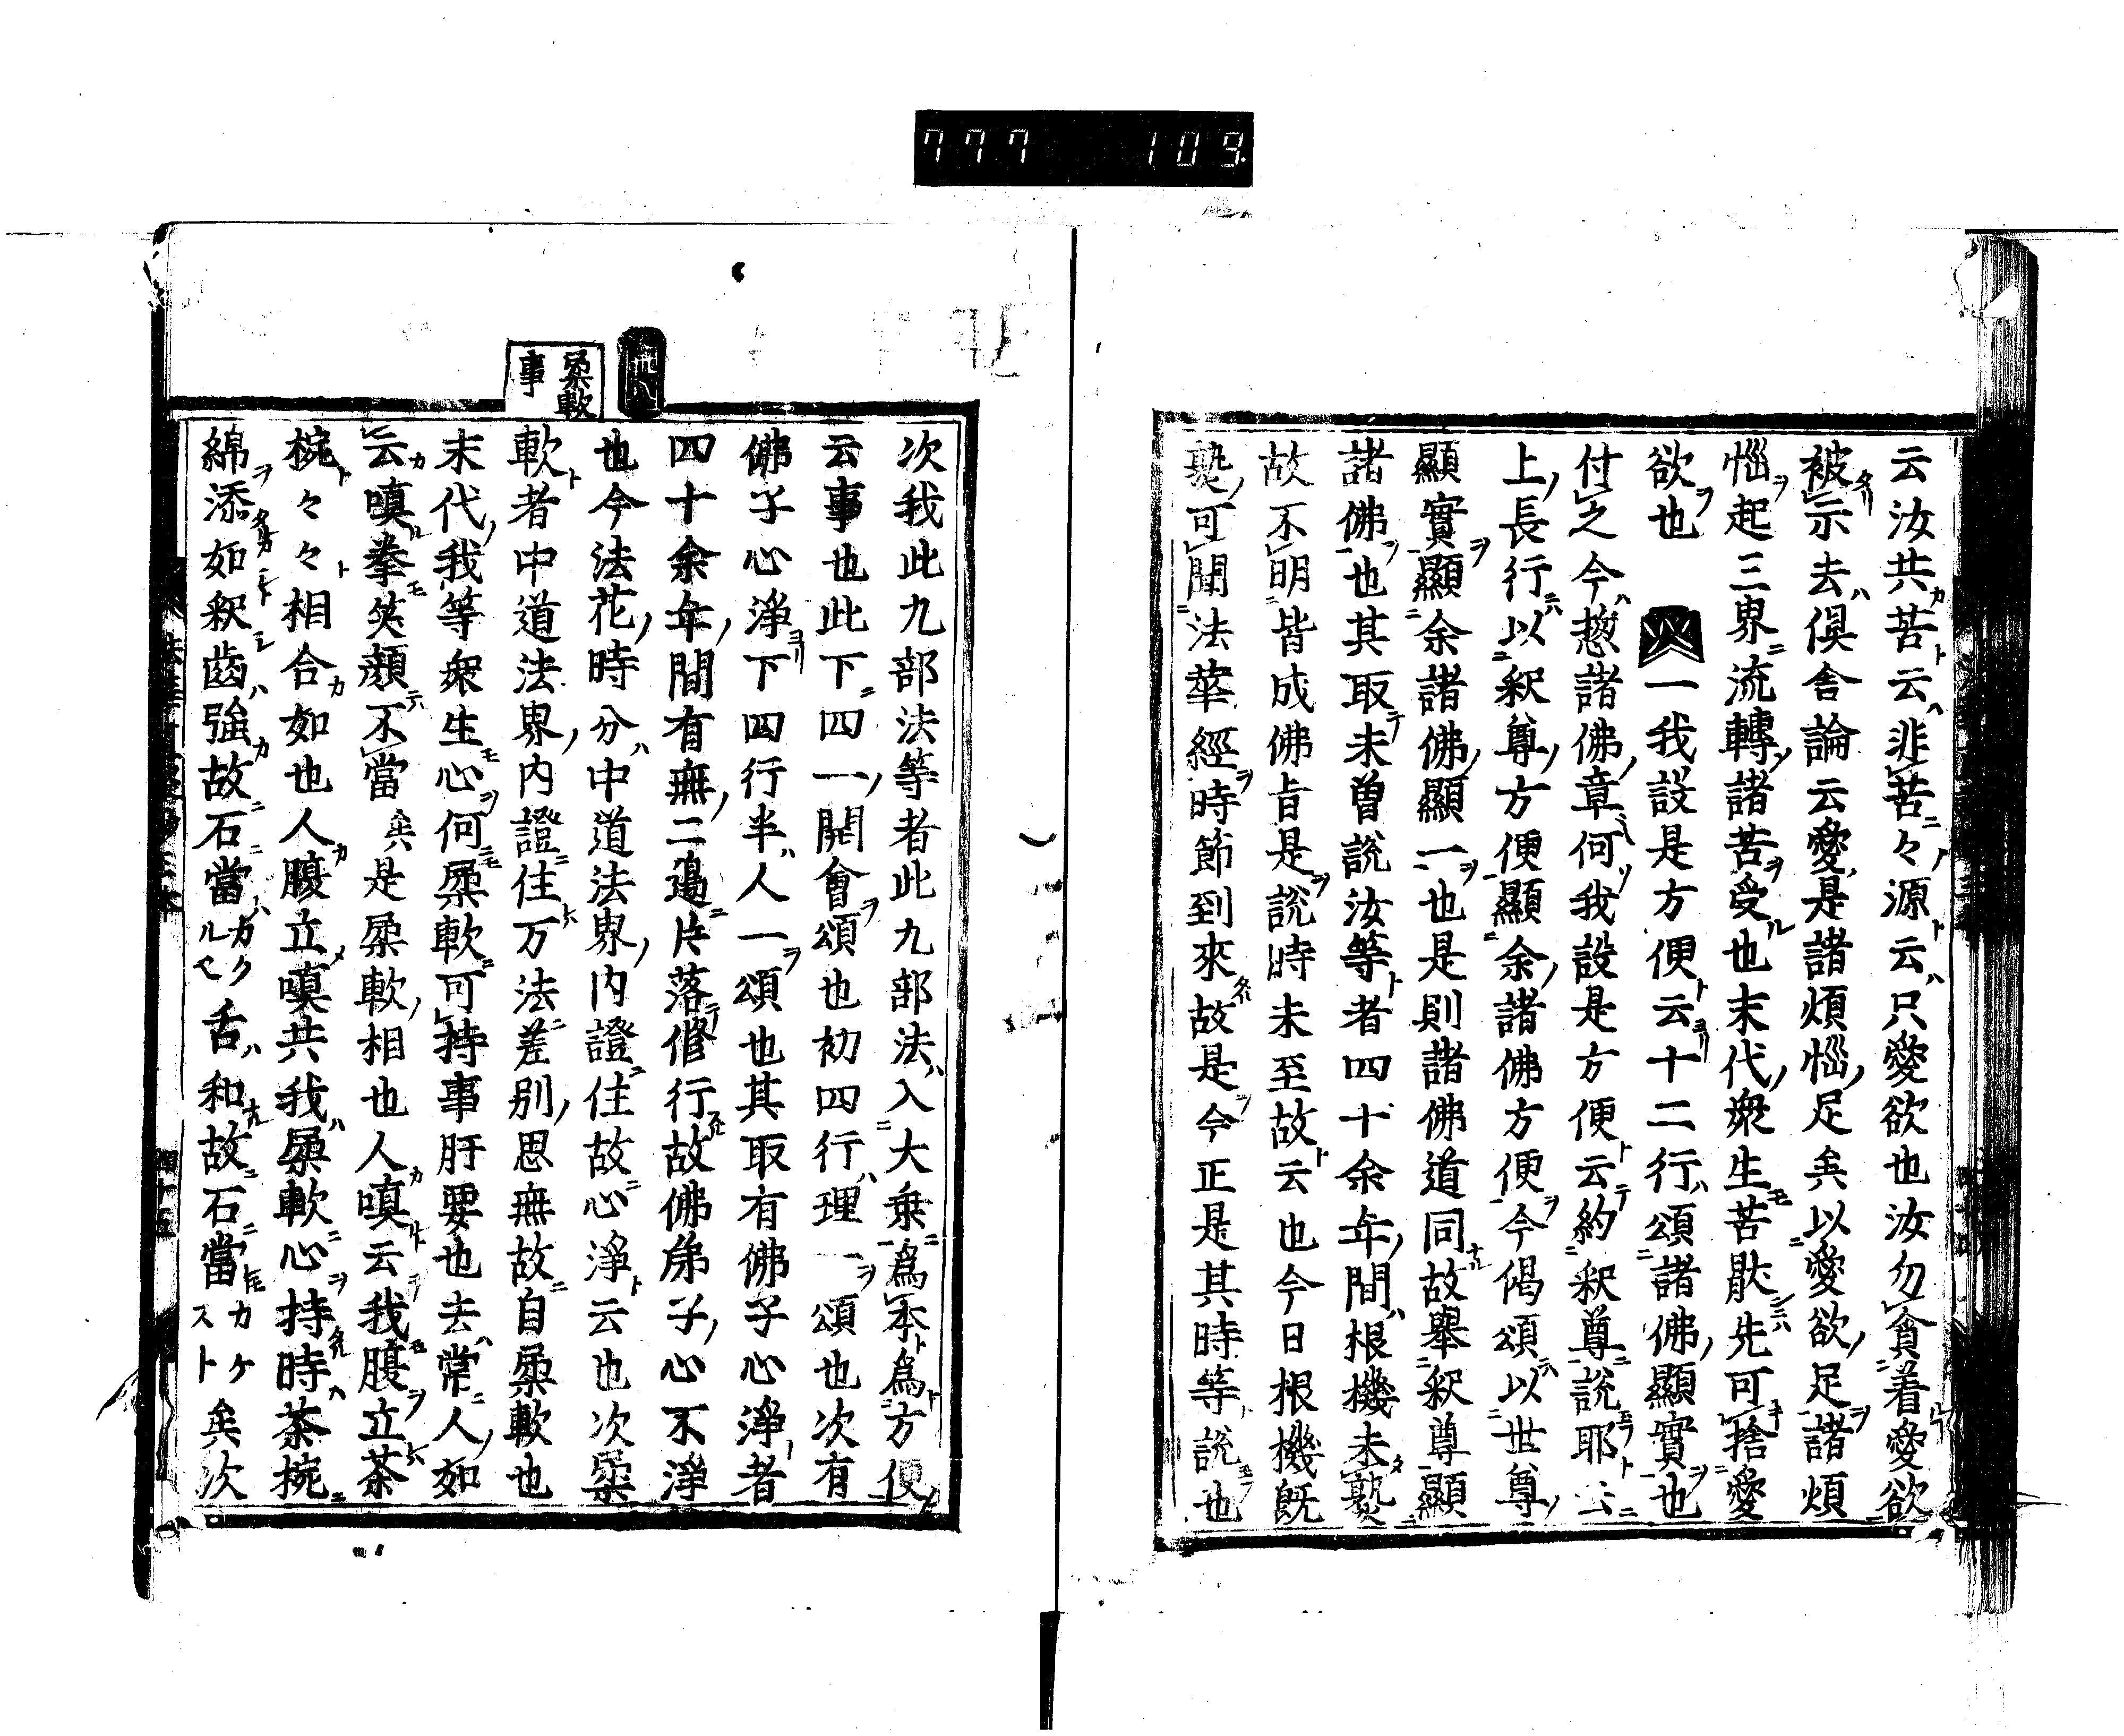 777 109
云汝共苦云非苦々源云只愛欲也汝勿貪着愛欲
被示去俱舍論云愛是諸煩惱足矣以愛欲足諸煩
惱起三界流轉諸苦受也末代衆生苦厭先可捨愛
欲也 一我設是方便云十二行頌諸佛顯實也
付之今㧾諸佛章何我設是方便云約釈尊說耶云
上長行以釈尊方便顯余諸佛方便今偈頌以世尊
顯實顯余諸佛顯一也是則諸佛道同故舉釈尊顯
諸佛也其取未曾說汝等者四十余年間根機未熟
故不明皆成佛旨是說時未至故云也今日根機既
熟可聞法華經時節到來故是今正是其時等說也
次我此九部法等者此九部法入大乗為本為方便
云事也此下四一開會頌也初四行理一頌也次有
佛子心淨下四行半人一頌也其取有佛子心淨者
四十余年間有無二邊片落修行故佛弟子心不淨
也今法花時分中道法界內證住故心淨云也次柔
柔軟事
軟者中道法界內證住万法差別思無故自柔軟也
末代我等衆生心何柔軟可持事肝要也去常人如
云嗔拳笑顔不當矣是柔軟相也人嗔云我腹立茶
椀々々相合如也人腹立嗔共我柔軟心持時茶椀
綿添如釈齒強故石當ルモ舌和故石當カケストト矣次